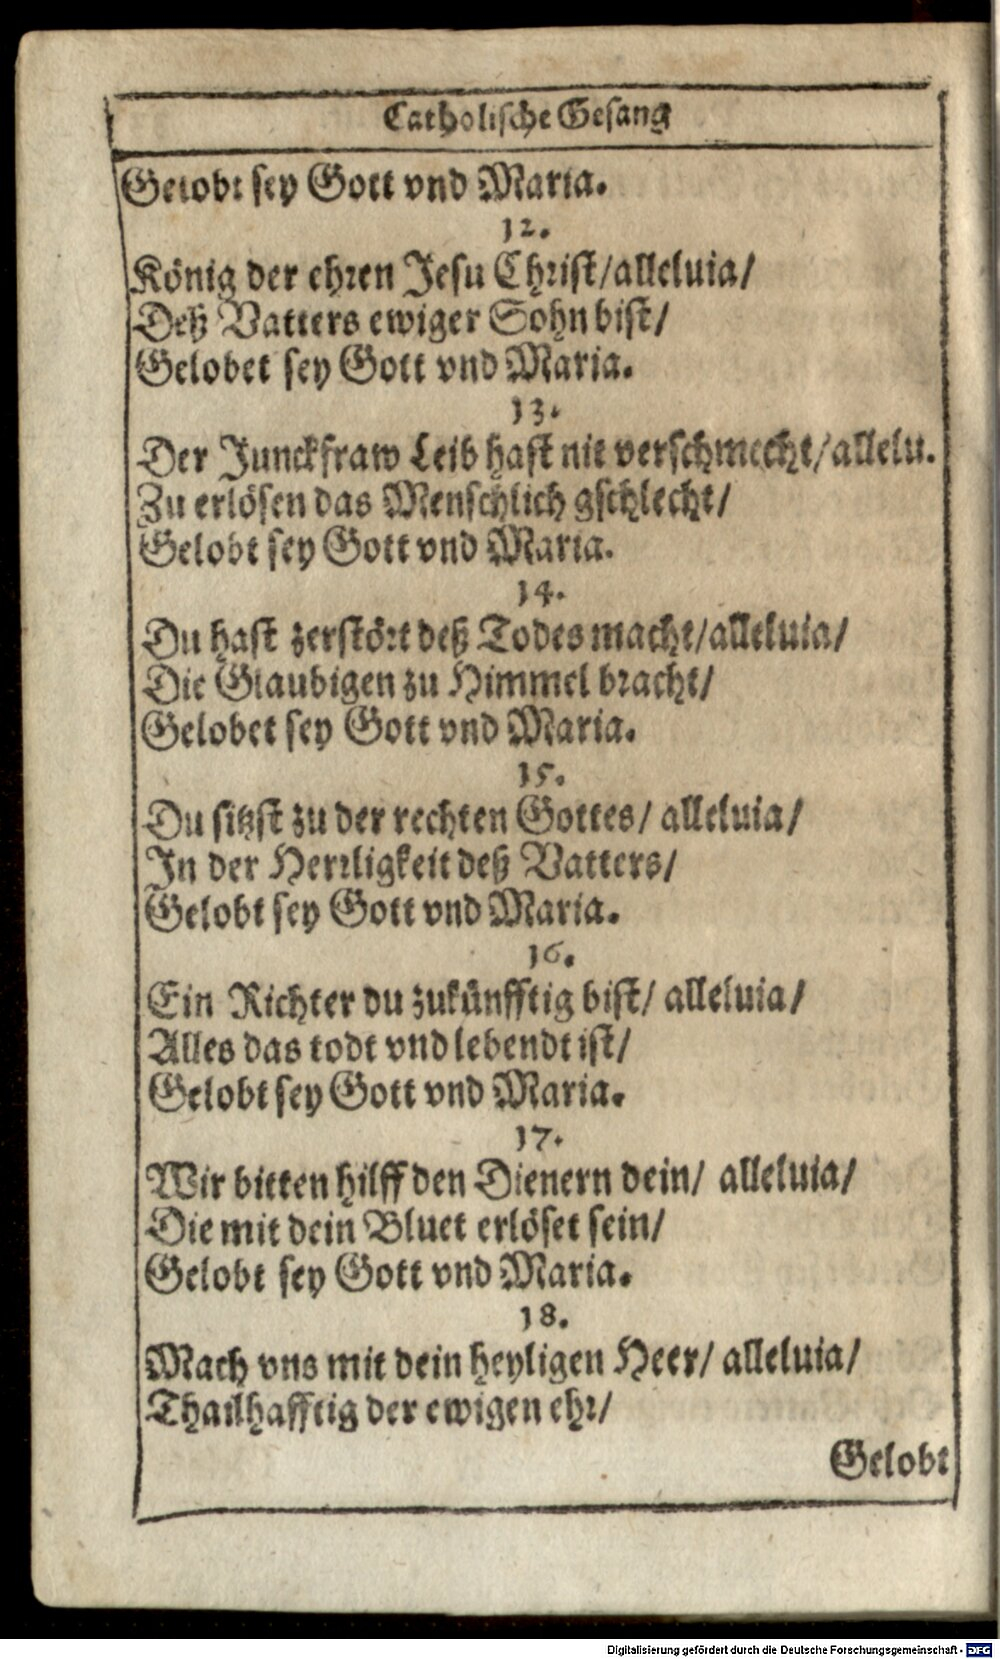 Catholische Gesang
Gelobt sey Gott vnd Maria.
12.
König der ehren Jesu Christ/alleluia/
Deß Vatters ewiger Sohn bist/
Gelobet sey Gott vnd Maria.
13.
Der Junckfraw Leib hast nit verschmecht/allelu.
Zu erlösen das Menschlich gschlecht/
Gelobt sey Gott vnd Maria.
14.
Du hast zerstört deß Todes macht/alleluia/
Die Glaubigen zu Himmel bracht/
Gelobet sey Gott vnd Maria.
15.
Du sitzst zu der rechten Gottes/ alleluia/
In der Herrligkeit deß Vatters/
Gelobt sey Gott vnd Maria.
16.
Ein Richter du zukünfftig bist/ alleluia/
Alles das todt vnd lebendt ist/
Gelobt sey Gott vnd Maria.
17.
Wir bitten hilff den Dienern dein/ alleluia/
Die mit dein Bluet erlöset sein/
Gelobt sey Gott vnd Maria.
18.
Mach vns mit dein heyligen Heer/ alleluia/
Thailhafftig der ewigen ehr/
Gelobt
Digitalisierung gefördert durch die Deutsche Forschungsgemeinschaft - DFG